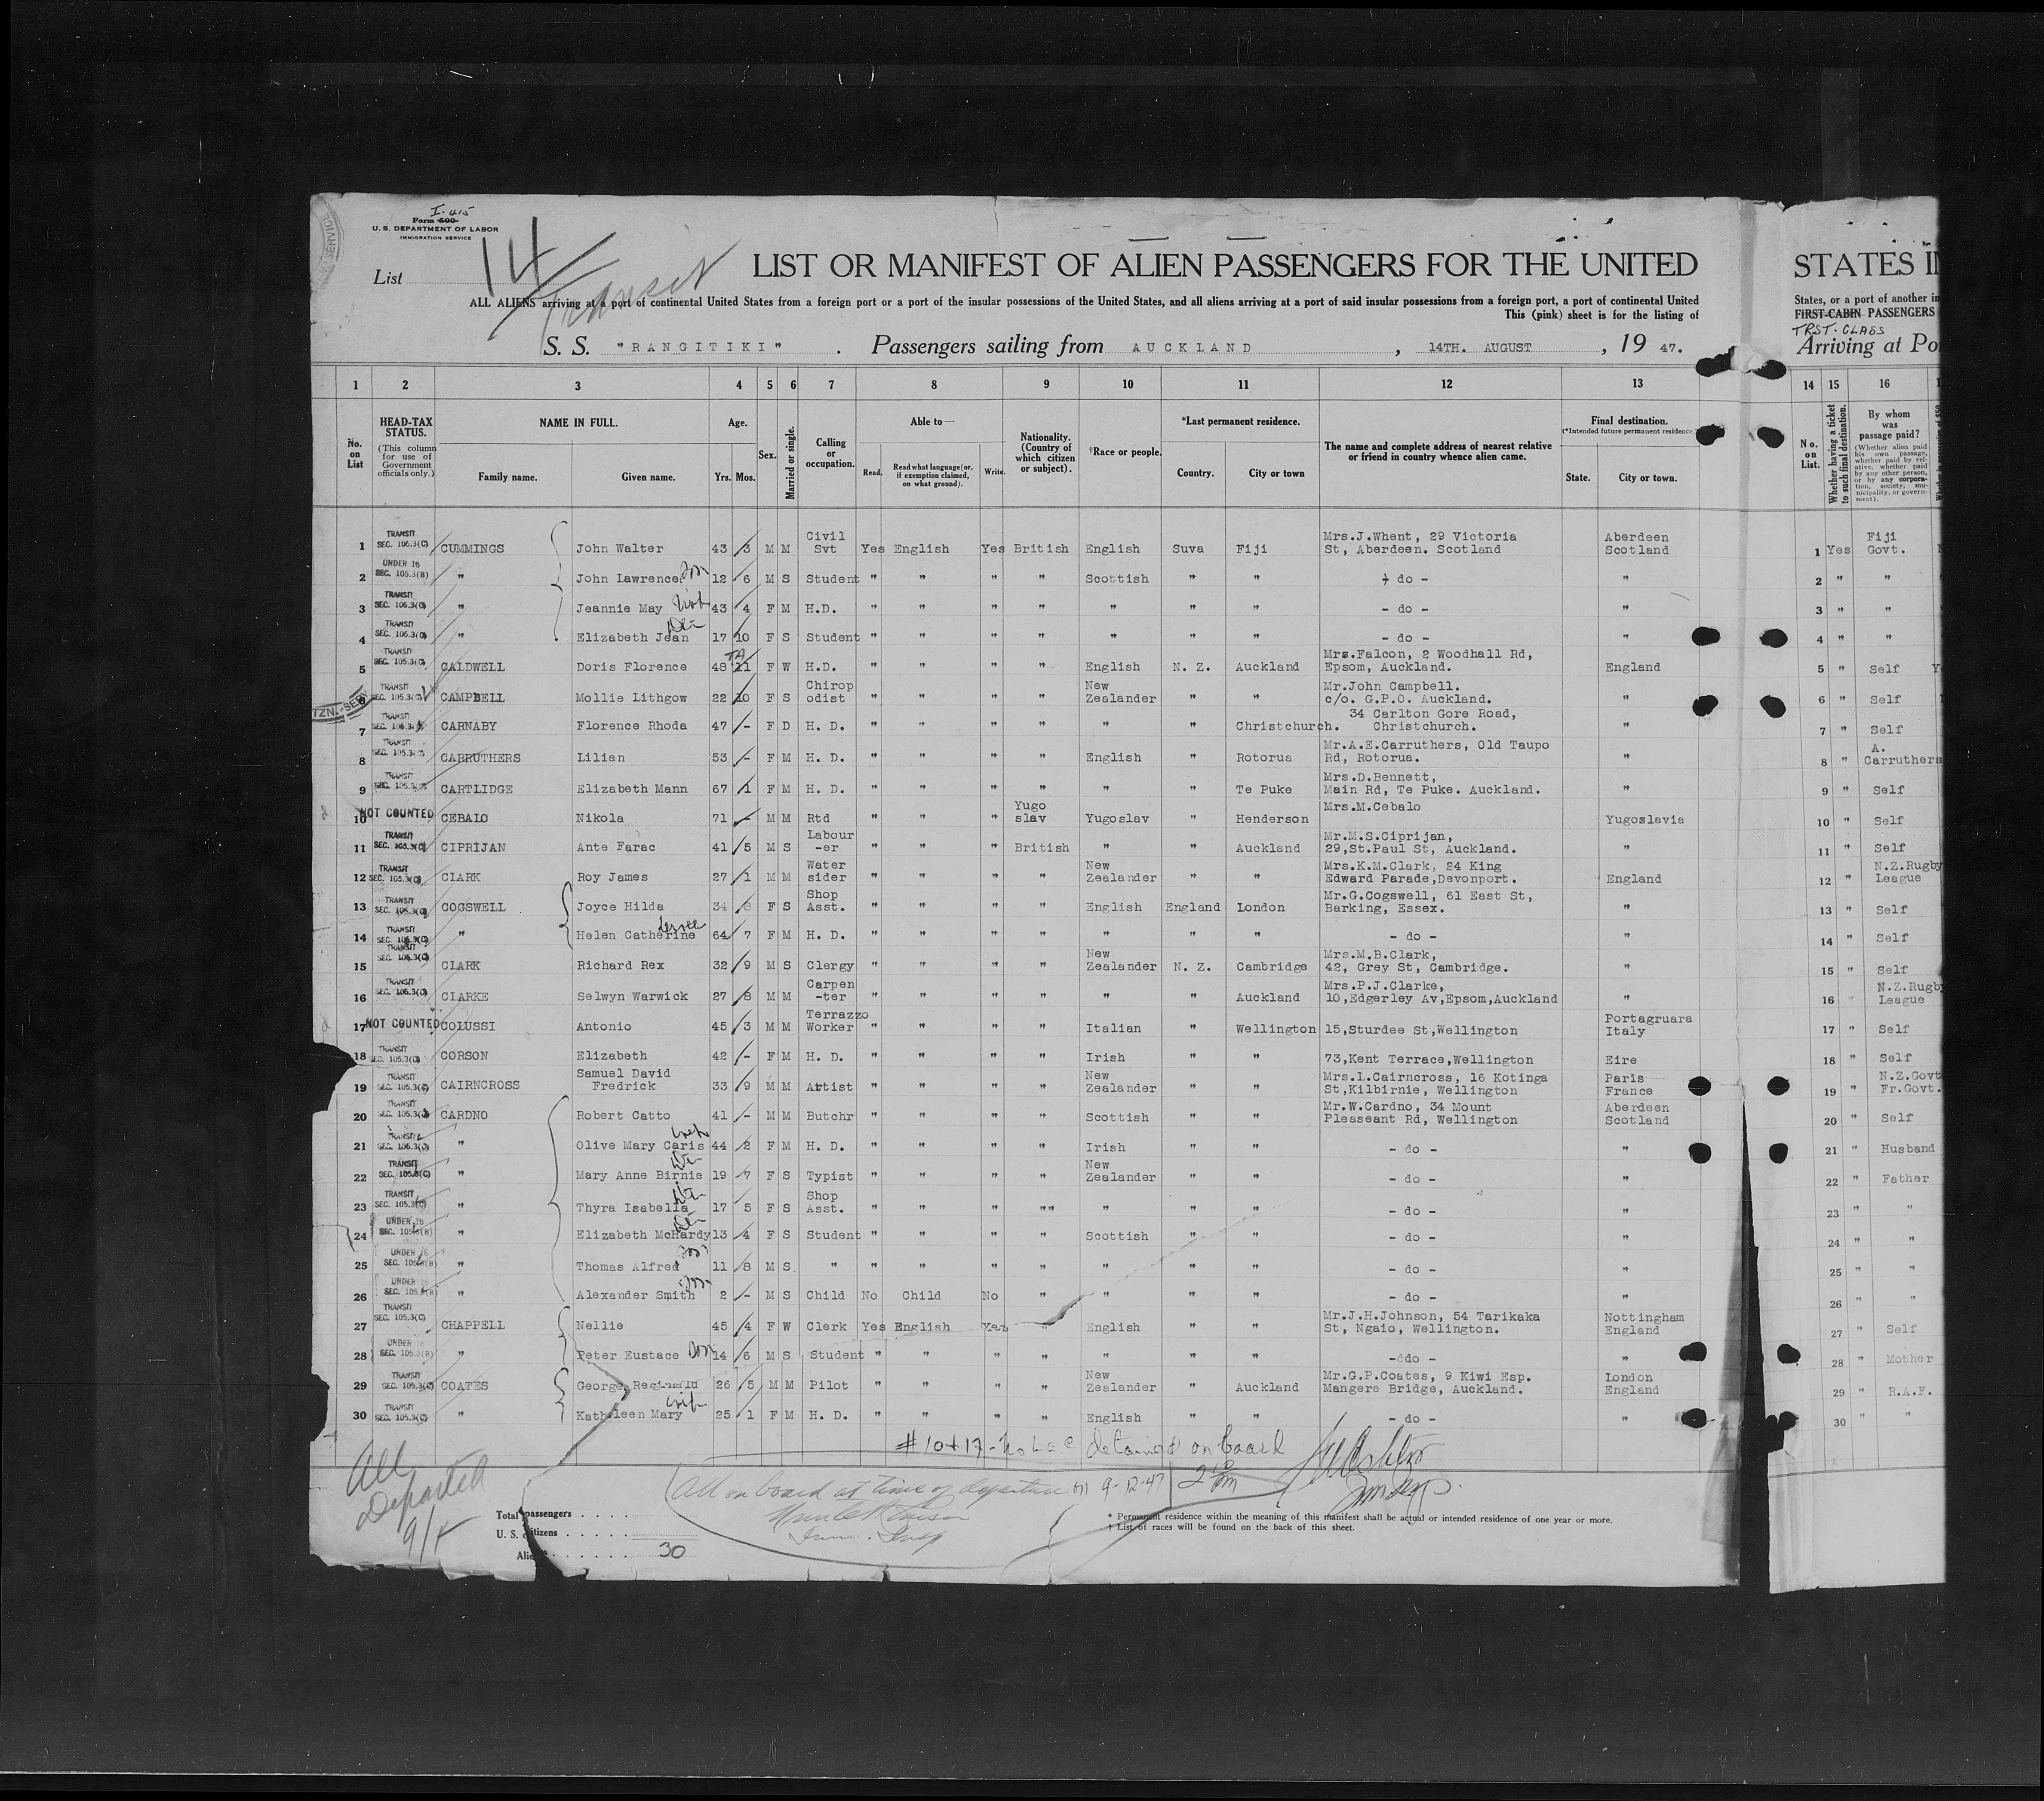 I-415
Form 500
U. S. DEPARTMENT OF LABOR
IMMIGRATION SERVICE
List 14
Transit
LIST OR MANIFEST OF ALIEN PASSENGERS FOR THE UNITED
ALL ALIENS arriving at a port of continental United States from a foreign port or a port of the insular possessions of the United States, and all aliens arriving at a port of said insular possessions from a foreign port, a port of continental United
This (pink) sheet is for the listing of
S. S. "RANGITIKI" . Passengers sailing from AUCKLAND , 14TH. AUGUST , 19 47.
STATES I
States, or a port of another in
FIRST-CABIN PASSENGERS
TRST. CLASS
Arriving at Po
1 2 3 4 5 6 7 8 9 10 11 12 13 14 15 16
No. on List
HEAD-TAX STATUS.
(This column for use of Government officials only.)
NAME IN FULL.
Family name. Given name.
Age.
Yrs. Mos.
Sex.
Married or single.
Calling or occupation.
Able to—
Read. Read what language (or, if exemption claimed, on what ground). Write.
Nationality. (Country of which citizen or subject).
†Race or people.
*Last permanent residence.
Country. City or town
The name and complete address of nearest relative or friend in country whence alien came.
Final destination.
(*Intended future permanent residence.)
State. City or town.
No. on List.
Whether having a ticket to such final destination.
By whom was passage paid?
(Whether alien paid his own passage, whether paid by relative, whether paid by any other person, or by any corporation, society, municipality, or government).
1 TRANSIT SEC. 105.3(C) CUMMINGS John Walter 43 3 M M Civil Svt Yes English Yes British English Suva Fiji Mrs.J.Whent, 29 Victoria St, Aberdeen. Scotland Aberdeen Scotland 1 Yes Fiji Govt.
2 UNDER 16 SEC. 105.3(B) " John Lawrence Son 12 6 M S Student " " " " Scottish " " - do - " 2 " "
3 TRANSIT SEC. 105.3(C) " Jeannie May 43 4 F M H.D. " " " " " " " - do - " 3 " "
4 TRANSIT SEC. 105.3(C) " Elizabeth Jean 17 10 F S Student " " " " " " " - do - " 4 " "
5 TRANSIT SEC. 105.3(C) CALDWELL Doris Florence 48 11 F W H.D. " " " " English N. Z. Auckland Mrs.Falcon, 2 Woodhall Rd, Epsom, Auckland. England 5 " Self
6 TRANSIT SEC. 105.3(C) CAMPBELL Mollie Lithgow 22 10 F S Chirop odist " " " " New Zealander " " Mr.John Campbell. c/o. G.P.O. Auckland. " 6 " Self
7 TRANSIT SEC. 105.3(C) CARNABY Florence Rhoda 47 - F D H. D. " " " " " " Christchurch. 34 Carlton Gore Road, Christchurch. " 7 " Self
8 TRANSIT SEC. 105.3(C) CARRUTHERS Lilian 53 - F M H. D. " " " " English " Rotorua Mr.A.E.Carruthers, Old Taupo Rd, Rotorua. " 8 " A. Carruthers
9 TRANSIT SEC. 105.3(C) CARTLIDGE Elizabeth Mann 67 1 F M H. D. " " " " " " Te Puke Mrs.D.Bennett, Main Rd, Te Puke. Auckland. " 9 " Self
10 NOT COUNTED CEBALO Nikola 71 - M M Rtd " " " Yugo slav Yugoslav " Henderson Mrs.M.Cebalo Yugoslavia 10 " Self
11 TRANSIT SEC. 105.3(C) CIPRIJAN Ante Farac 41 5 M S Labour -er " " " British " " Auckland Mr.M.S.Ciprijan, 29,St.Paul St, Auckland. " 11 " Self
12 TRANSIT SEC. 105.3(C) CLARK Roy James 27 1 M M Water sider " " " " New Zealander " " Mrs.K.M.Clark, 24 King Edward Parade,Devonport. England 12 " N.Z.Rugby League
13 TRANSIT SEC. 105.3(C) COGSWELL Joyce Hilda 34 8 F S Shop Asst. " " " " English England London Mr.G.Cogswell, 61 East St, Barking, Essex. " 13 " Self
14 TRANSIT SEC. 105.3(C) " Helen Catherine 64 7 F M H. D. " " " " " " " - do - " 14 " Self
15 TRANSIT SEC. 105.3(C) CLARK Richard Rex 32 9 M S Clergy " " " " New Zealander N. Z. Cambridge Mrs.M.B.Clark, 42, Grey St, Cambridge. " 15 " Self
16 TRANSIT SEC. 105.3(C) CLARKE Selwyn Warwick 27 8 M M Carpen -ter " " " " " " Auckland Mrs.P.J.Clarke, 10,Edgerley Av,Epsom,Auckland " 16 " N.Z.Rugby League
17 NOT COUNTED COLUSSI Antonio 45 3 M M Terrazzo Worker " " " " Italian " Wellington 15,Sturdee St,Wellington Portagruara Italy 17 " Self
18 TRANSIT SEC. 105.3(C) CORSON Elizabeth 42 - F M H. D. " " " " Irish " " 73,Kent Terrace,Wellington Eire 18 " Self
19 TRANSIT SEC. 105.3(C) CAIRNCROSS Samuel David Fredrick 33 9 M M Artist " " " " New Zealander " " Mrs.L.Cairncross, 16 Kotinga St,Kilbirnie, Wellington Paris France 19 " N.Z.Govt Fr.Govt.
20 TRANSIT SEC. 105.3(C) CARDNO Robert Catto 41 - M M Butchr " " " " Scottish " " Mr.W.Cardno, 34 Mount Pleaseant Rd, Wellington Aberdeen Scotland 20 " Self
21 TRANSIT SEC. 105.3(C) " Olive Mary Caris wife 44 2 F M H. D. " " " " Irish " " - do - " 21 " Husband
22 TRANSIT SEC. 105.3(C) " Mary Anne Birnie 19 7 F S Typist " " " " New Zealander " " - do - " 22 " Father
23 TRANSIT SEC. 105.3(C) " Thyra Isabella 17 5 F S Shop Asst. " " " "" " " " - do - " 23 " "
24 UNDER 16 SEC. 105.3(B) " Elizabeth McHardy 13 4 F S Student " " " " Scottish " " - do - " 24 " "
25 UNDER 16 SEC. 105.3(B) " Thomas Alfred Son 11 8 M S " " " " " " " " - do - " 25 " "
26 UNDER 16 SEC. 105.3(B) " Alexander Smith Son 2 - M S Child No Child No " " " " - do - " 26 " "
27 TRANSIT SEC. 105.3(C) CHAPPELL Nellie 45 4 F W Clerk Yes English Yes " English " " Mr.J.H.Johnson, 54 Tarikaka St, Ngaio, Wellington. Nottingham England 27 " Self
28 UNDER 16 SEC. 105.3(B) " Peter Eustace Son 14 6 M S Student " " " " " " " -ddo - " 28 " Mother
29 TRANSIT SEC. 105.3(C) COATES George Reginald 26 5 M M Pilot " " " " New Zealander " Auckland Mr.G.P.Coates, 9 Kiwi Esp. Mangere Bridge, Auckland. London England 29 " R.A.F.
30 TRANSIT SEC. 105.3(C) " Kathleen Mary wife 25 1 F M H. D. " " " " English " " - do - " 30 " "
#10+17- detained on board
All Departed 9/
All on board at time of departure on 9-12-47 2 10 pm
Total passengers
U. S. citizens
Aliens 30
* Permanent residence within the meaning of this manifest shall be actual or intended residence of one year or more.
† List of races will be found on the back of this sheet.